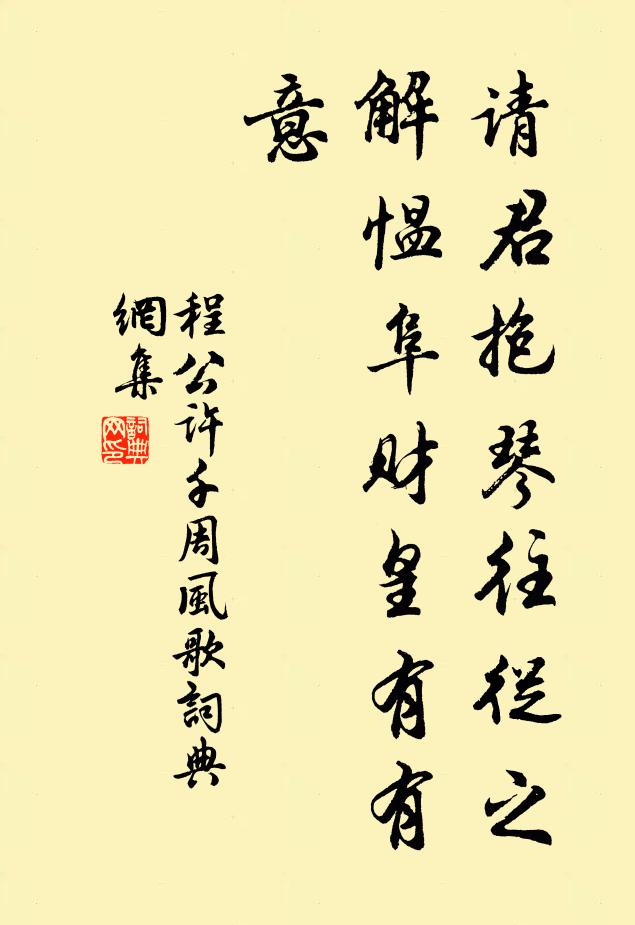 请君抱琴往從之
解愠阜财皇有有
意
程公许千周風歌詞典
網集
詞典網印